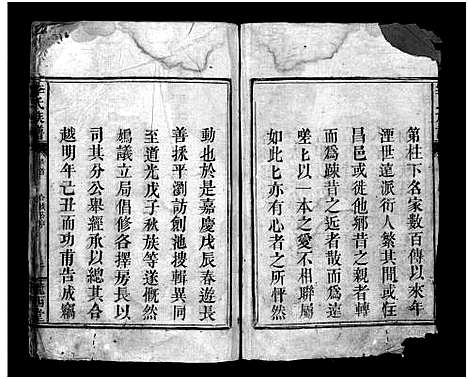 第杜下名家數百傳以來年
湮世遠派衍人繁其間或住
昌邑或徙他鄉昔之親者轉
而為疎昔之近者散而為遠
嗟上以一本之愛不相聯屬
如此匕亦有心者之所怦然
動也於是嘉慶戊辰春遊長
善採平瀏訪創池搜輯異同
至道光戊子秋族等遂慨然
鳩議立局倡修各擇房長以
司其分公舉經承以總其合
越明年己丑而功甫告成竊
氏族譜